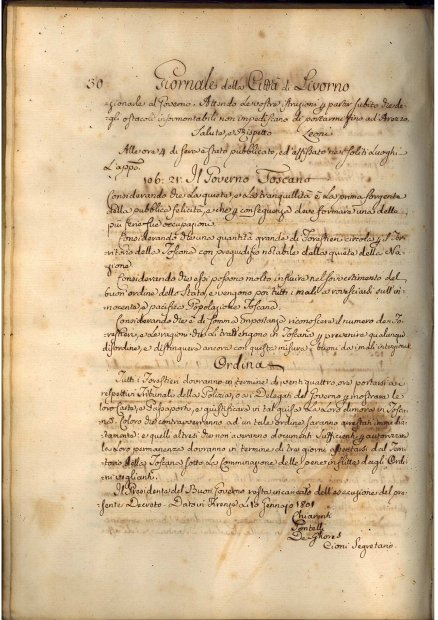 30 Giornale della Città di Livorno
gionarle al Governo. Attendo le vostre Istruzioni p partir subito che de-
gli ostacoli insormontabili non impediscano di portarmi fino ad Arezzo.
Salute, e Rispetto Leoni
Alle ore 4 di sera è stato pubblicato, ed affissato nei soliti Luoghi
L'appo.
106: 21: Il Governo Toscano
Considerando che la quiete, e la tranquillità è la prima sorgente
della pubblica felicità, e che p conseguenza deve formare una delle
più serie sue occupazioni
Considerando che una quantità grande di Forestieri circola p il Ter-
ritorio della Toscana con pregiudizio notabile della quiete della Na-
zione
Considerando che essi possono molto influire nel sovvertimento del
buon ordine dello Stato, e vengono poi tutti i mali a rovesciarsi sull'in-
nocente, e pacifica Popolazione Toscana.
Considerando che è di somma importanza riconoscere il numero dei Fo-
restieri, e le ragioni che li trattengono in Toscana p prevenire qualunque
disordine, e distinguere ancora con queste misure i buoni dai male intenzionati
Ordina
Tutti i Forestieri dovranno in termine di venti quattro ore portarsi ai
respettivi Tribunali della Polizia, o ai Delegati del Governo p mostrare le
loro Carte, e Passaporto, e qualificare in tal guisa la loro dimora in Tosca-
na. Coloro che contravverranno ad un tale ordine saranno arrestati imme dia-
tamente: e quelli altresì che non avranno documenti sufficienti p autorizzare
la loro permanenza dovranno in termine di tre giorni spatriarsi dal Terri-
torio della Toscana sotto la Comminazione delle pene inflitte dagli Ordi-
ni veglianti.
Il Presidente del Buon Governo resta incaricato dell'esecuzione del pre-
sente Decreto. Dato in Firenze li 10 Gennajo 1801
Chiarenti
Pontelli
De Ghores
Cioni Segretario.